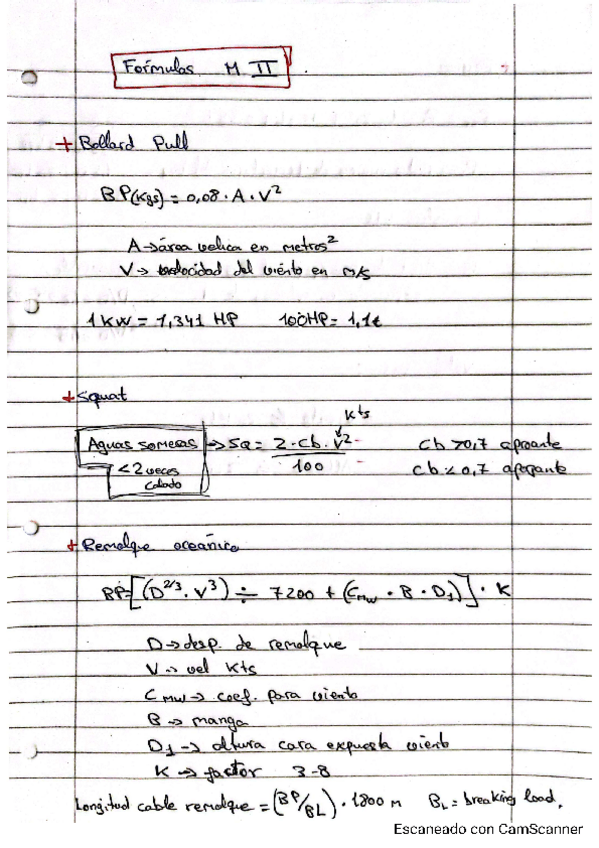 Formulas M II
+ Bollard Pull
BP(Kgs) = 0,08 · A · V²
A → área velica en metros²
V → velocidad del viento en m/s
1 KW = 1,341 HP 100HP = 1,1t
+ Squat
Kts
Aguas someras → Sq = 2 · Cb · V² / 100 Cb > 0,7 aproante
< 2 veces calado Cb < 0,7 apopante
+ Remolque oceánico
BP = [(D^2/3 · V³) ÷ 7200 + (C_MW · B · D₁)] · K
D → desp. de remolque
V → vel Kts
C_MW → coef. para viento
B → manga
D₁ → altura cara expuesta viento
K → factor 3-8
Longitud cable remolque = (BP/BL) · 1800 m BL = breaking load.
Escaneado con CamScanner